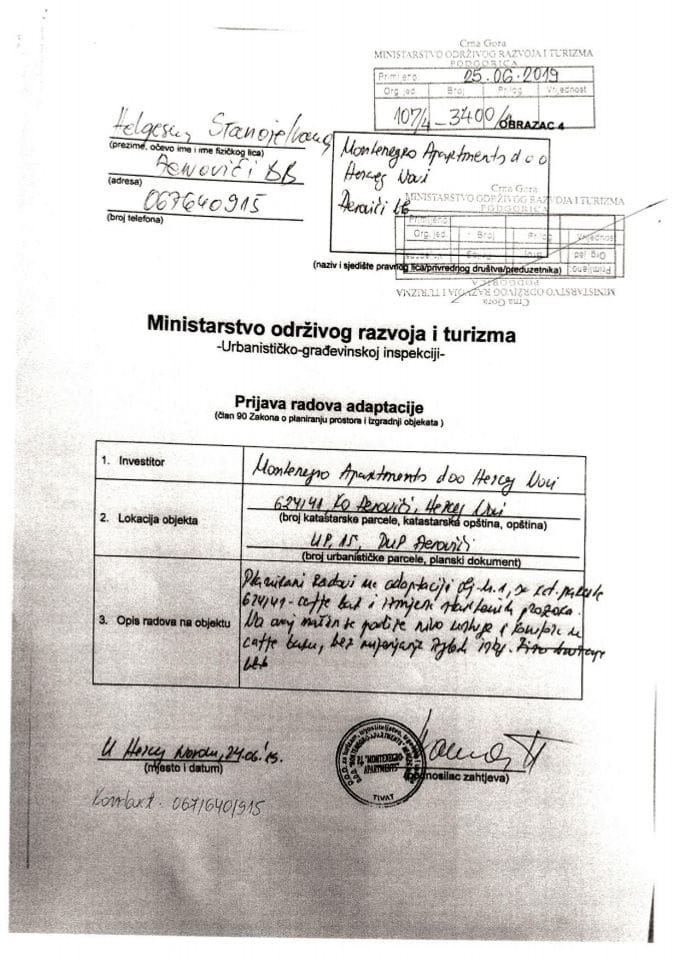 Crna Gora
MINISTARSTVO ODRŽIVOG RAZVOJA I TURIZMA
PODGORICA
Primljeno: 25.06.2019
Org. jed. Broj Prilog Vrijednost
107/4-3400/
OBRAZAC 4
(prezime, očevo ime i ime fizičkog lica)
Đenovići BB
(adresa)
067640915
(broj telefona)
Montenegro Apartments doo
Herceg Novi
Đenovići BB
Crna Gora
MINISTARSTVO ODRŽIVOG RAZVOJA I TURIZMA
PODGORICA
Primljeno:
Org. jed. Broj Prilog Vrijednost
(naziv i sjedište pravnog lica/privrednog društva/preduzetnika)
Ministarstvo održivog razvoja i turizma
-Urbanističko-građevinskoj inspekciji-
Prijava radova adaptacije
(član 90 Zakona o planiranju prostora i izgradnji objekata )
1. Investitor
Montenegro Apartments doo Herceg Novi
2. Lokacija objekta
624/41 KO Đenovići, Herceg Novi
(broj katastarske parcele, katastarska opština, opština)
UP. 15, DUP Đenovići
(broj urbanističke parcele, planski dokument)
3. Opis radova na objektu
Planirani radovi na adaptaciji obj. br. 1, kat. parcele
624/41 - caffe bar i izmjeni prozora.
Na ovaj način se nivo usluge i komfora u
caffe baru, bez mijenjanja
U Herceg Novom, 24.06.19.
(mjesto i datum)
"MONTENEGRO
APARTMENTS"
TIVAT
(podnosilac zahtjeva)
Kontakt. 067/640/915